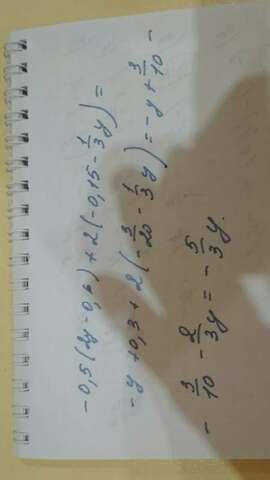 -0,5(2y-0,6)+2(-0,15-1/3y)=
-y+0,3+2(-3/20-1/3y)=-y+3/10-
-3/10-2/3y=-5/3y.